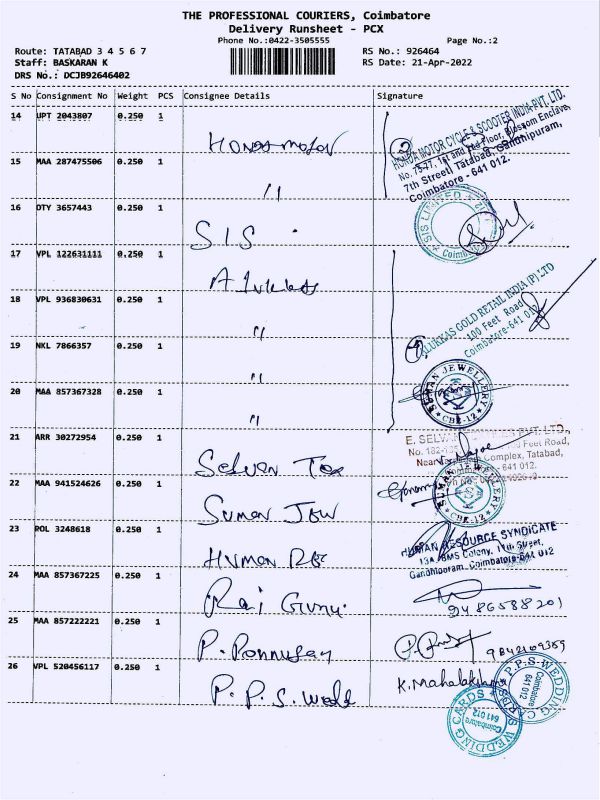 THE PROFESSIONAL COURIERS, Coimbatore
Delivery Runsheet - PCX
Phone No.:0422-3505555
Page No.:2
Route: TATABAD 3 4 5 6 7
RS No.: 926464
Staff: BASKARAN K
RS Date: 21-Apr-2022
DRS No.: DCJB92646402
S No Consignment No Weight PCS Consignee Details Signature
14 UPT 2043807 0.250 1 HONDA MOTOR
HONDA MOTOR CYCLE & SCOOTER INDIA PVT. LTD.
No. 75-77, 1st and 2nd Floor, Blossom Enclave,
7th Street, Tatabad, Gandhipuram,
Coimbatore - 641 012.
15 MAA 287475506 0.250 1 "
16 OTY 3657443 0.250 1 SIS
SIS LIMITED
Coimbatore
17 VPL 122631111 0.250 1
18 VPL 936830631 0.250 1 "
ALUKKAS GOLD RETAIL INDIA (P) LTD
100 Feet Road
Coimbatore-641 012
19 NKL 7866357 0.250 1 "
20 MAA 857367328 0.250 1 "
SUMAN JEWELLERY
CBE-12
21 ARR 30272954 0.250 1 Selvan Tex
E. SELVAN
No. 182- Feet Road,
Near Complex, Tatabad,
641 012.
22 MAA 941524626 0.250 1 SUMAN JEW
SUMAN JEWELLERY
CBE-12
23 ROL 3248618 0.250 1 HUMAN RE
HUMAN RESOURCE SYNDICATE
13A, BMS Colony, 11th Street,
Gandhipuram, Coimbatore-641 012
24 MAA 857367225 0.250 1 Raj Guru
9486588201
25 MAA 857222221 0.250 1 P. Ponnusamy
9842109359
26 VPL 520456117 0.250 1 P.P.S. Wedd
K. Mahalakshmi
P.P.S-WEDDING CARDS
Coimbatore
641 012
P.P.S WEDDING CARDS
Coimbatore
641 012